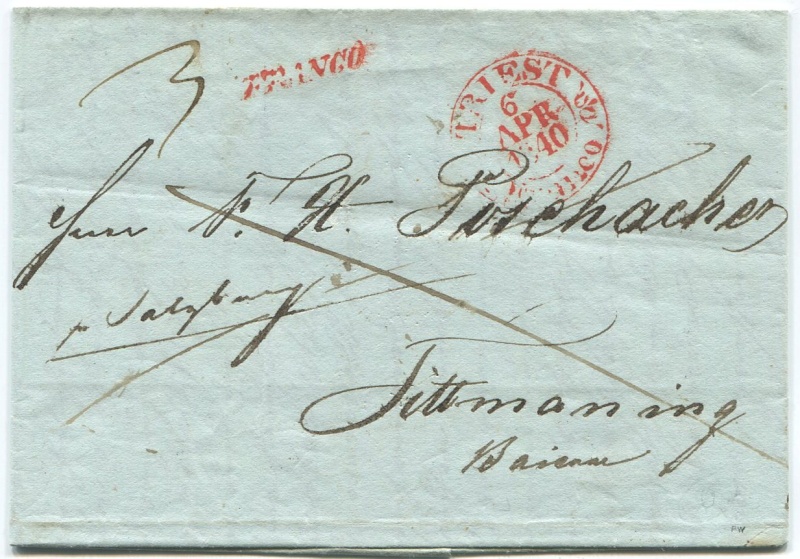 3
FRANCO
TRIEST
6
APR.
1840
Herrn F. H. Poschacher
pr Salzburg
Tittmaning
Baiern
PW